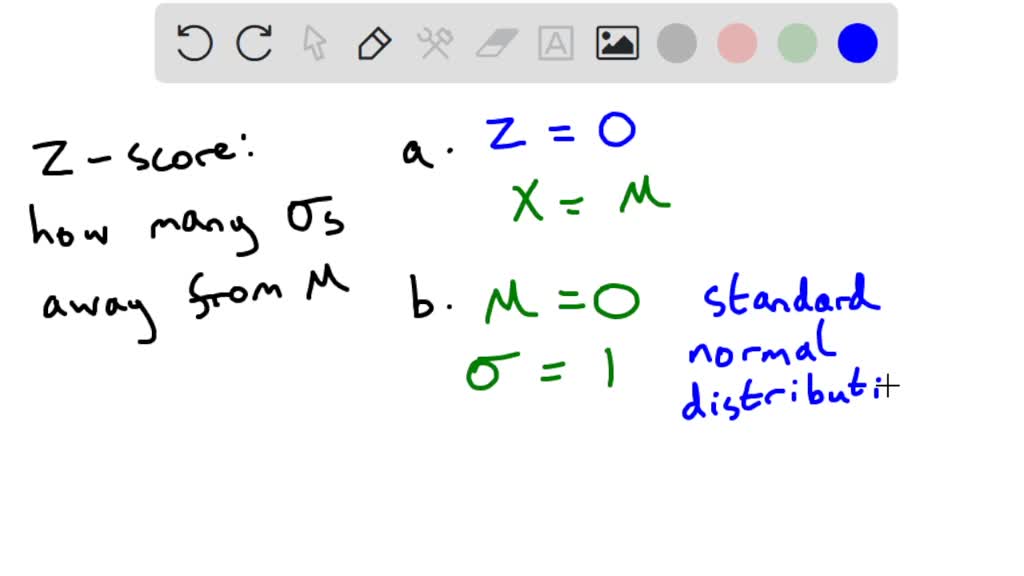 Z - score:
how many σs
away from μ
a. Z = 0
X = μ
b. μ = 0
σ = 1
standard
normal
distributi